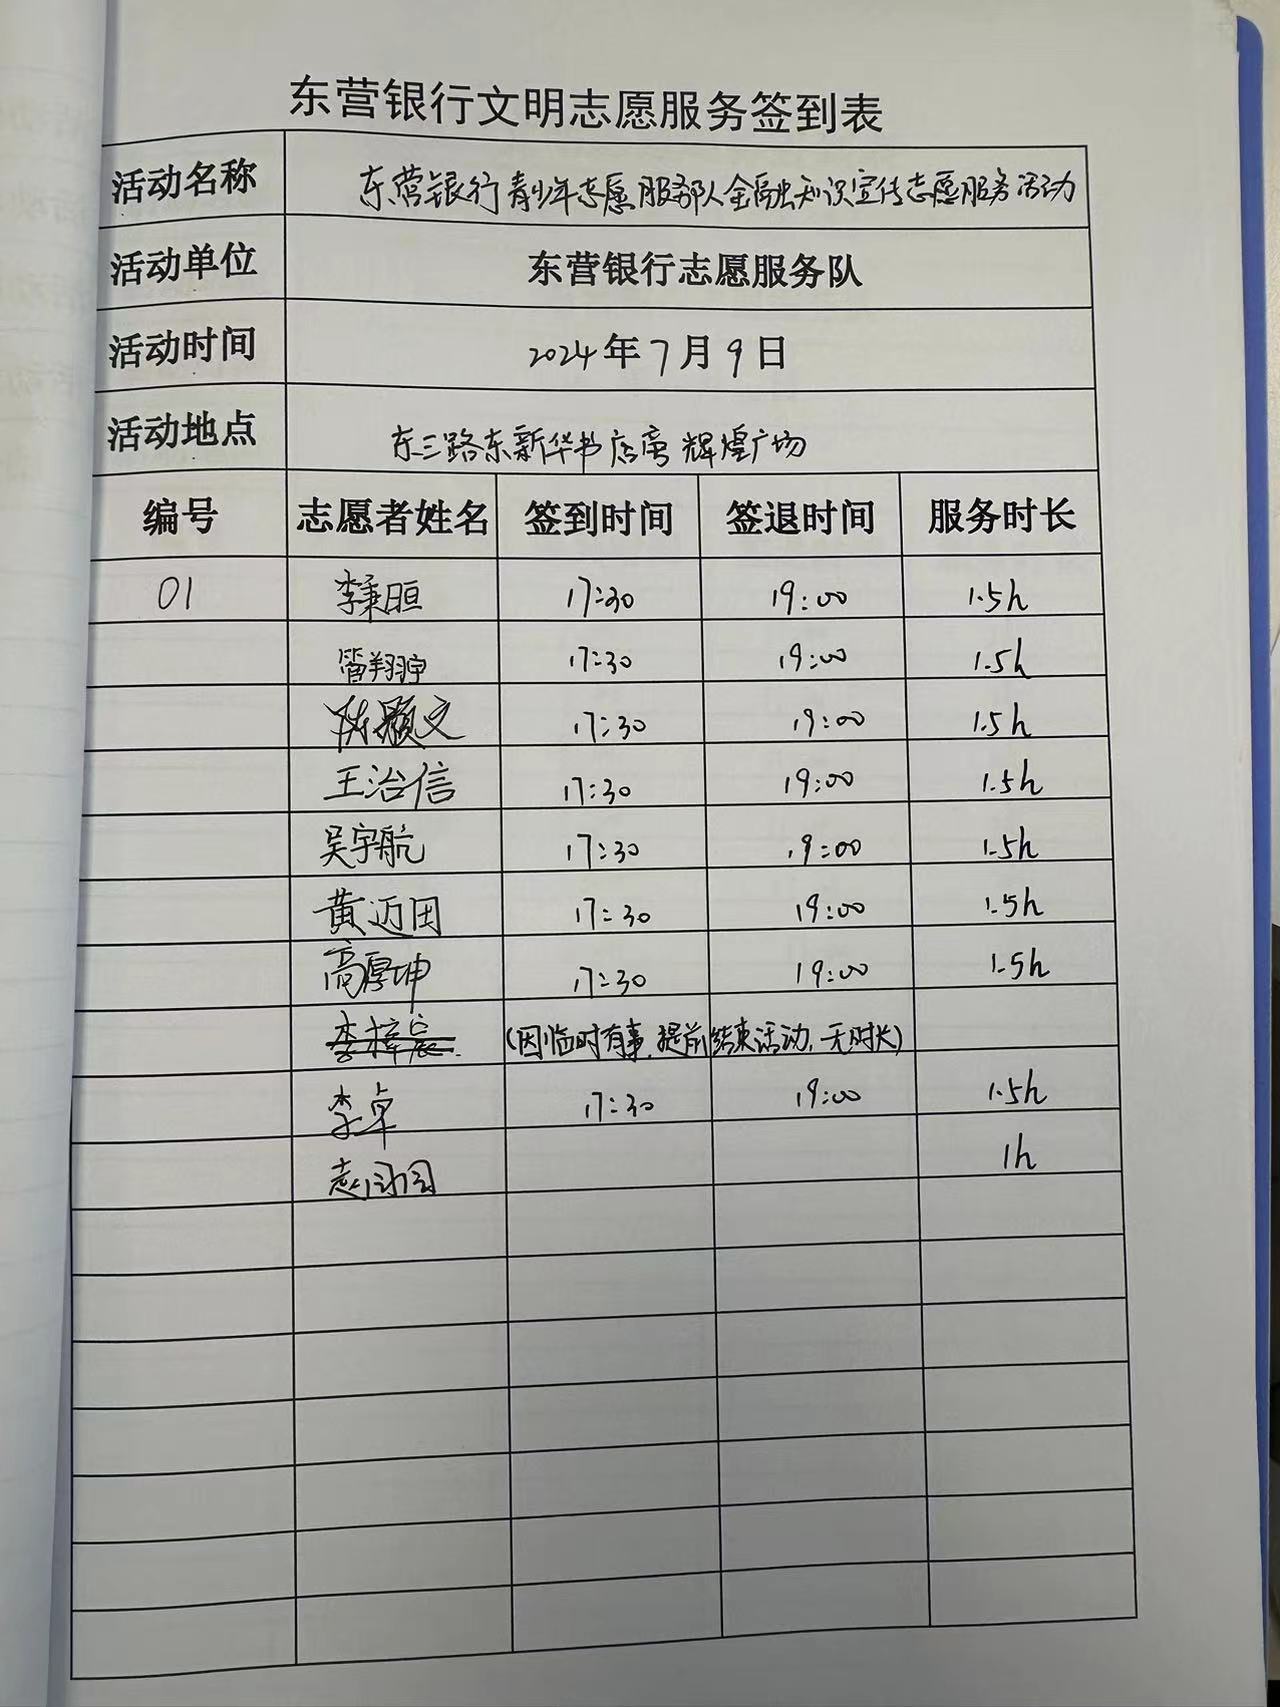 东营银行文明志愿服务签到表
活动名称 东营银行青少年志愿服务队金融知识宣传志愿服务活动
活动单位 东营银行志愿服务队
活动时间 2024年7月9日
活动地点 东三路东新华书店旁 辉煌广场
编号 志愿者姓名 签到时间 签退时间 服务时长
01 李秉晅 17:30 19:00 1.5h
翔宇 17:30 19:00 1.5h
陈颢文 17:30 19:00 1.5h
王治信 17:30 19:00 1.5h
吴宇航 17:30 19:00 1.5h
黄迈田 17:30 19:00 1.5h
高厚坤 17:30 19:00 1.5h
李梓宸 (因临时有事,提前结束活动,无时长)
李卓 17:30 19:00 1.5h
1h